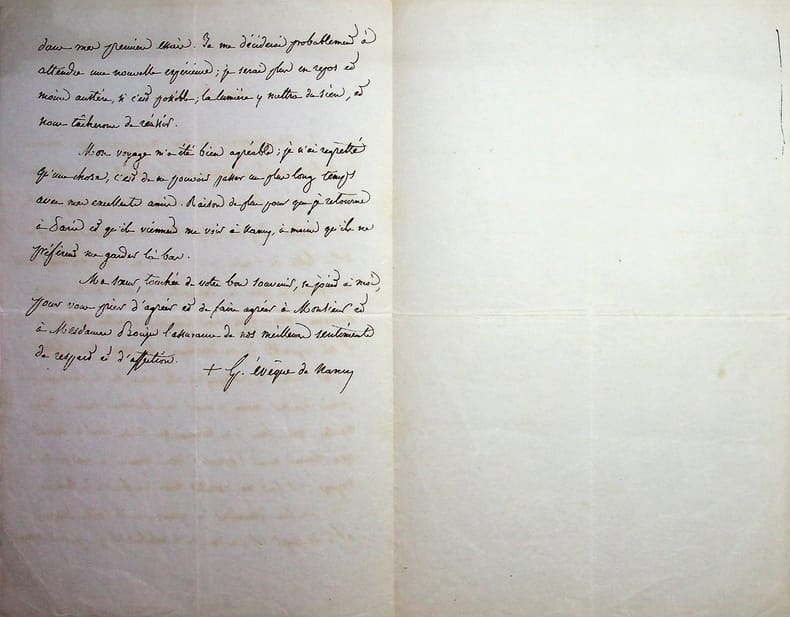 dans mon premier essai. Je me déciderai probablement à
attendre une nouvelle expérience; je serai plus en repos et
moins austère, si c'est possible; la lumière y mettra du sien, et
nous tâcherons de réussir.
Mon voyage m'a été bien agréable; je n'ai regretté
qu'une chose, c'est de ne pouvoir passer un plus long temps
avec mes excellents amis. Raison de plus pour que je retourne
à Paris et qu'ils viennent me voir à Nancy, à moins qu'ils ne
préfèrent me garder là bas.
Ma sœur, touchée de votre bon souvenir, se joint à moi,
pour vous prier d'agréer et de faire agréer à Monsieur et
à Mesdames l'assurance de nos meilleurs sentiments
de respect et d'affection.
+ G. évêque de Nancy